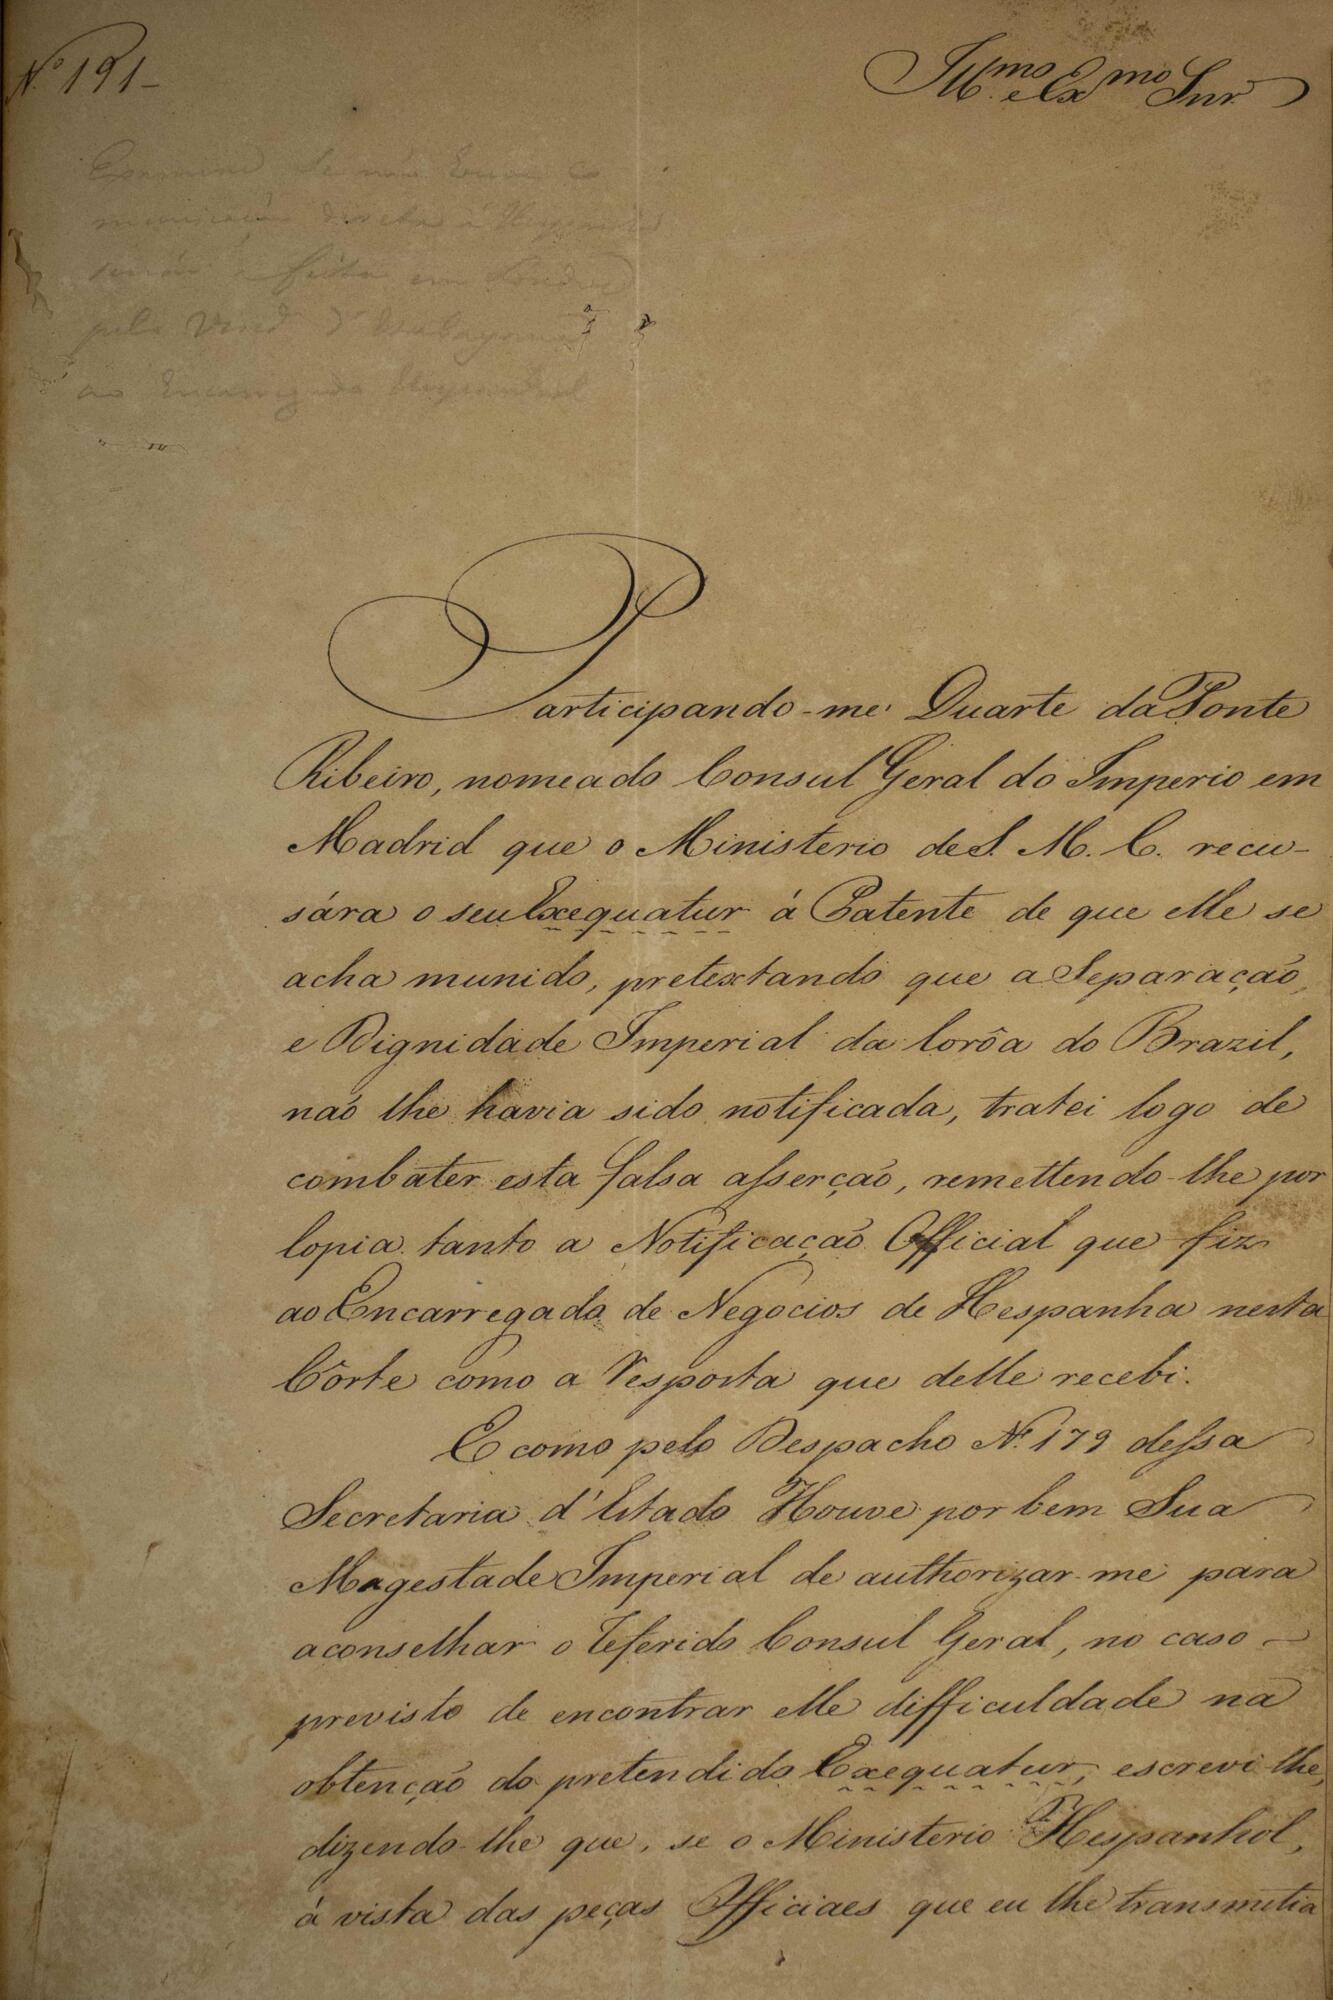 Nº 191-
Illmo. e Exmo Snr.
se não
directa á
feita em Londres
pelo Visc.
ao Encarregado
Participando-me Duarte da Ponte
Ribeiro, nomeado Consul Geral do Imperio em
Madrid que o Ministerio de S. M. C. recu-
sára o seu Exequatur á Patente de que elle se
acha munido, pretextando que a Separação,
e Dignidade Imperial da Corôa do Brazil,
naõ lhe havia sido notificada, tratei logo de
combater esta falsa asserção, remettendo-lhe por
Copia tanto a Notificação Official que fiz
ao Encarregado de Negocios de Hespanha nesta
Côrte como a Resposta que delle recebi.
E como pelo Despacho Nº 179 dessa
Secretaria d'Estado Houve por bem Sua
Magestade Imperial de authorizar-me para
aconselhar o referido Consul Geral, no caso
previsto de encontrar elle difficuldade na
obtenção do pretendido Exequatur, escrevi-lhe,
dizendo-lhe que, se o Ministerio Hespanhol,
á vista das peças Officiaes que eu lhe transmitia